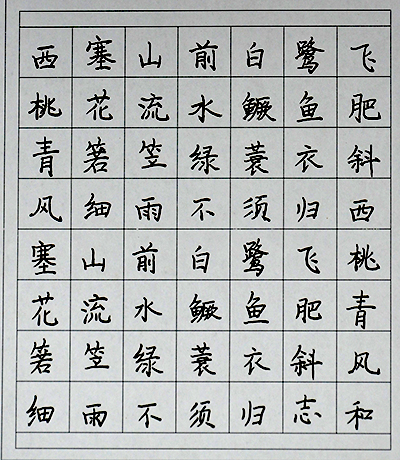 西塞山前白鹭飞
桃花流水鳜鱼肥
青箬笠绿蓑衣斜
风细雨不须归西
塞山前白鹭飞桃
花流水鳜鱼肥青
箬笠绿蓑衣斜风
细雨不须归志和